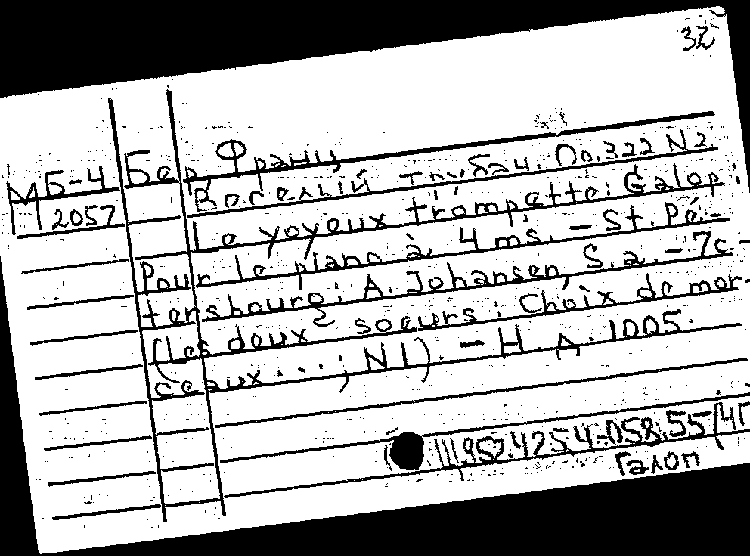 32
МБ-4 Бер, Франц
2057 Веселый трубач. Op. 322 N2.
Le yoyeux trompette: Galop:
Pour le piano à 4 ms. – St. Pé-
tersbourg: A. Johansen, S.a. – 7c –
(Les deux soeurs: Choix de mor-
ceaux...; N1). – Н. д. 1005.
Ш.957.4254-058.55
Галоп